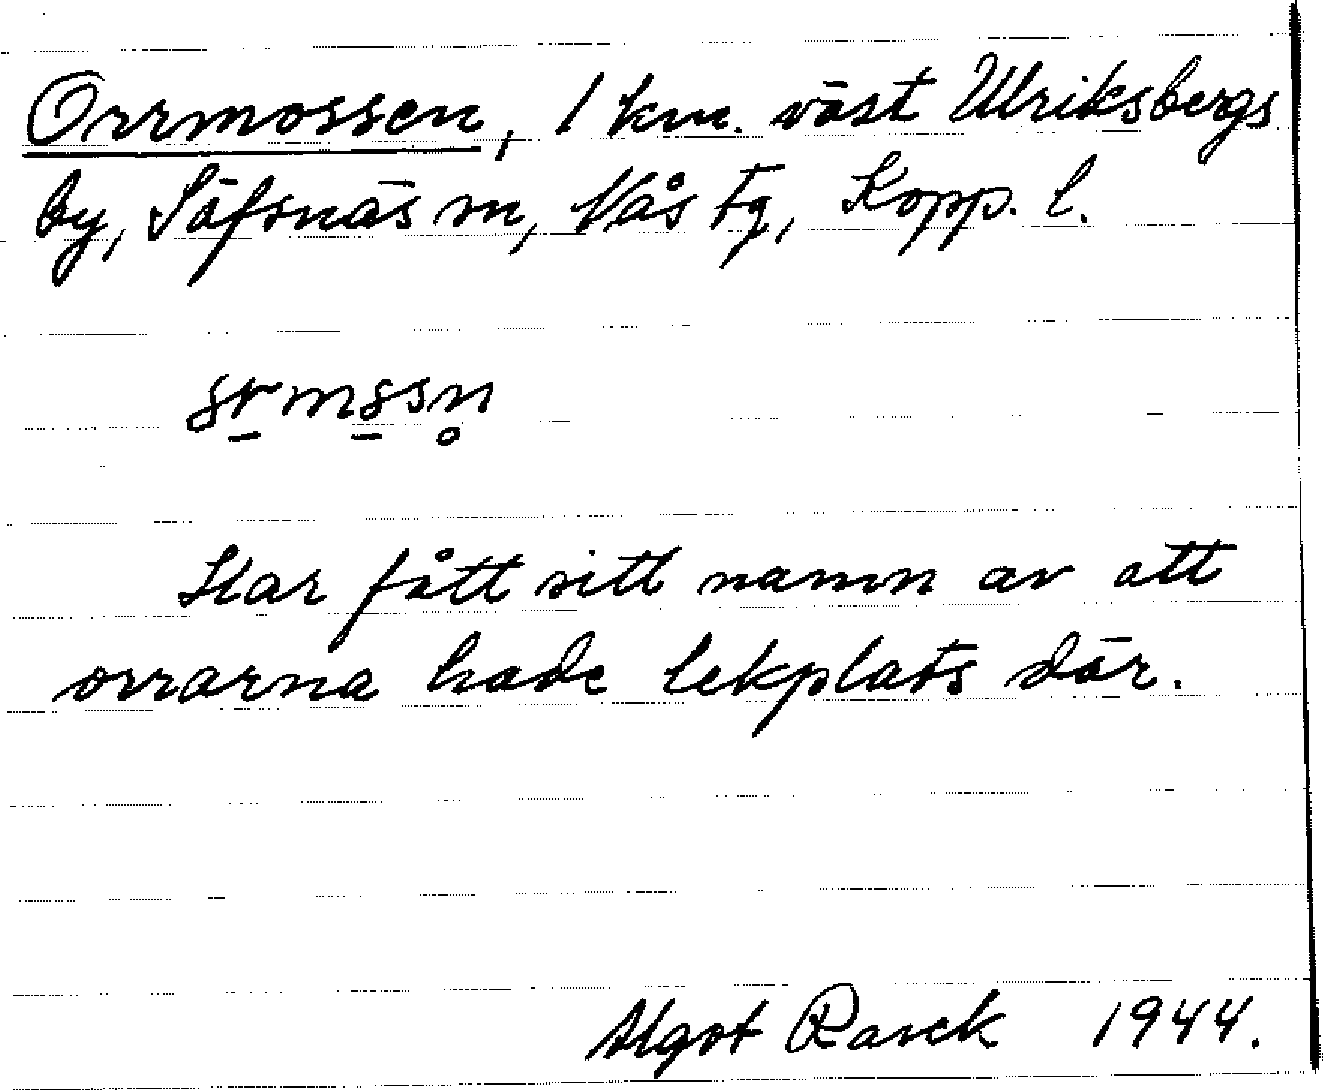 Orrmossen, 1 km. väst Ulriksbergs
by, Säfsnäs sn, Nås tg, Kopp. l.
Har fått sitt namn av att
orrarna hade lekplats där.
Algot Rask 1944.